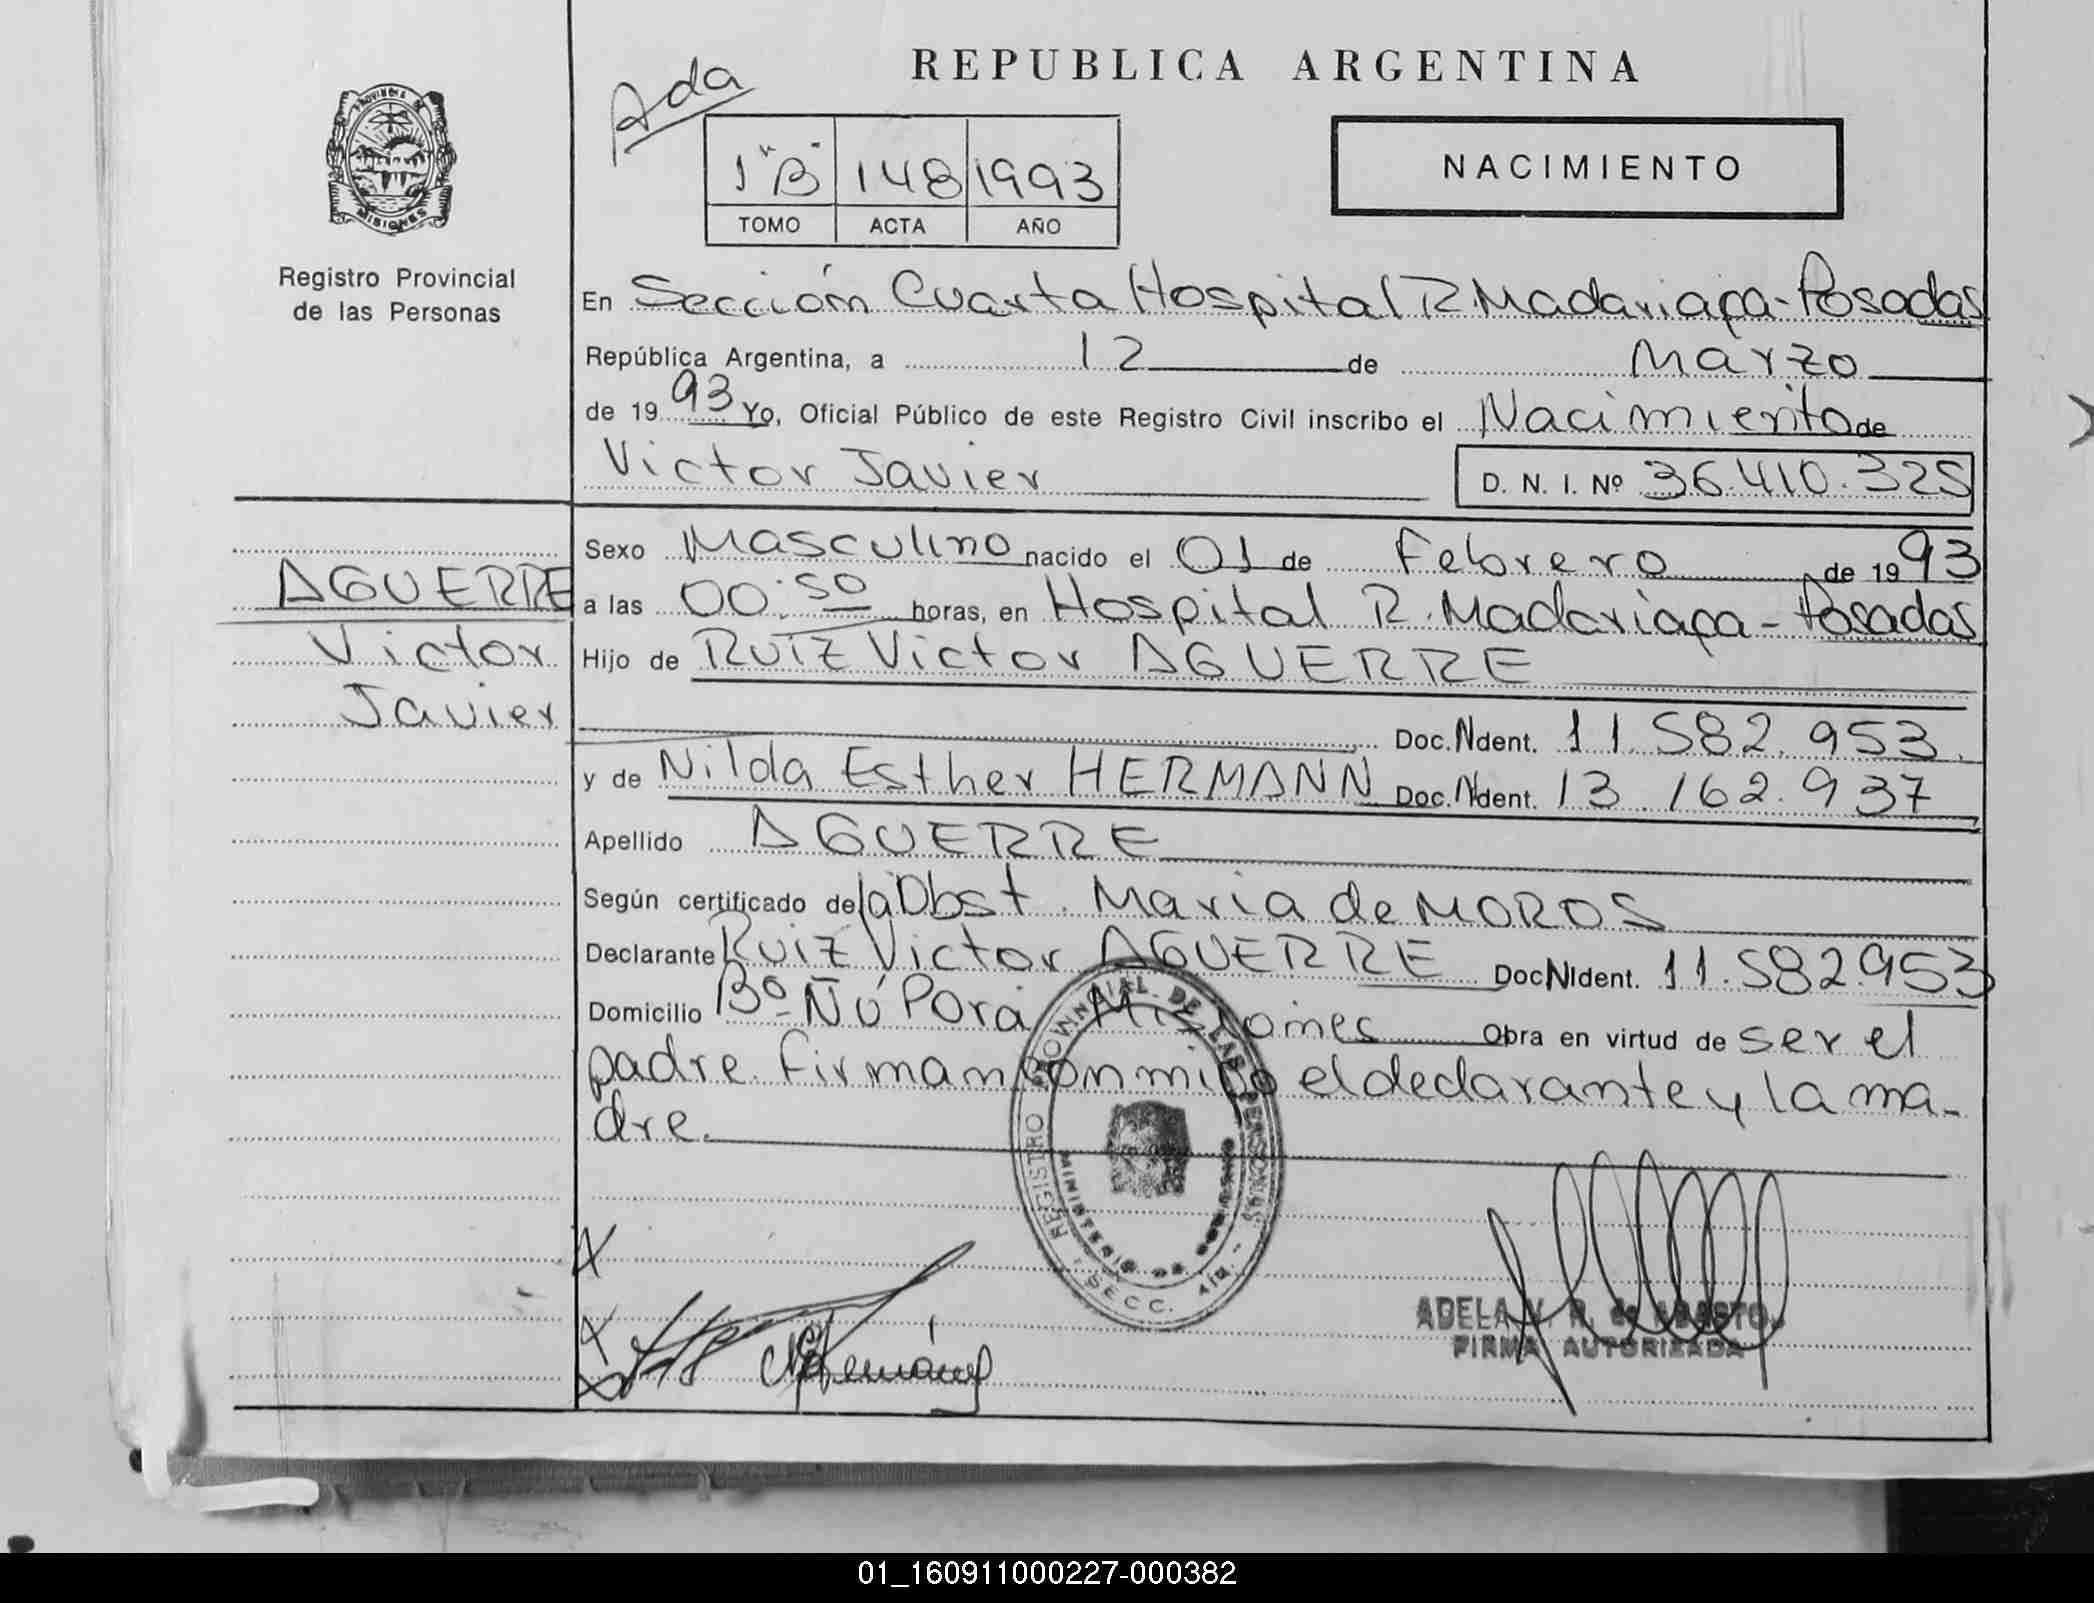 REPUBLICA ARGENTINA
Ada
PROVINCIA DE
MISIONES
1 "B" 148 1993
TOMO ACTA AÑO
NACIMIENTO
Registro Provincial
de las Personas
En Sección Cuarta Hospital R Madariaga - Posadas
República Argentina, a 12 de Marzo
de 1993 Yo, Oficial Público de este Registro Civil inscribo el Nacimiento de
Victor Javier D. N. I. Nº 36.410.325
Sexo Masculino nacido el 01 de Febrero de 1993
AGUERRE
Victor
Javier
a las 00:50 horas, en Hospital R. Madariaga - Posadas
Hijo de RUIZ Victor AGUERRE
Doc. Ident. 11.582.953.
y de Nilda Esther HERMANN Doc. Ident. 13.162.937
Apellido AGUERRE
Según certificado de la Obst. Maria de MOROS
Declarante Ruiz Victor AGUERRE Doc NIdent. 11.582.953
Domicilio Bº Ñú Porá Misiones Obra en virtud de ser el
padre. Firman conmigo el declarante y la ma-
dre.
REGISTRO PROVINCIAL DE LAS PERSONAS
MINISTERIO DE
SECC. 4ta.
ADELA V. R. de
FIRMA AUTORIZADA
01_160911000227-000382